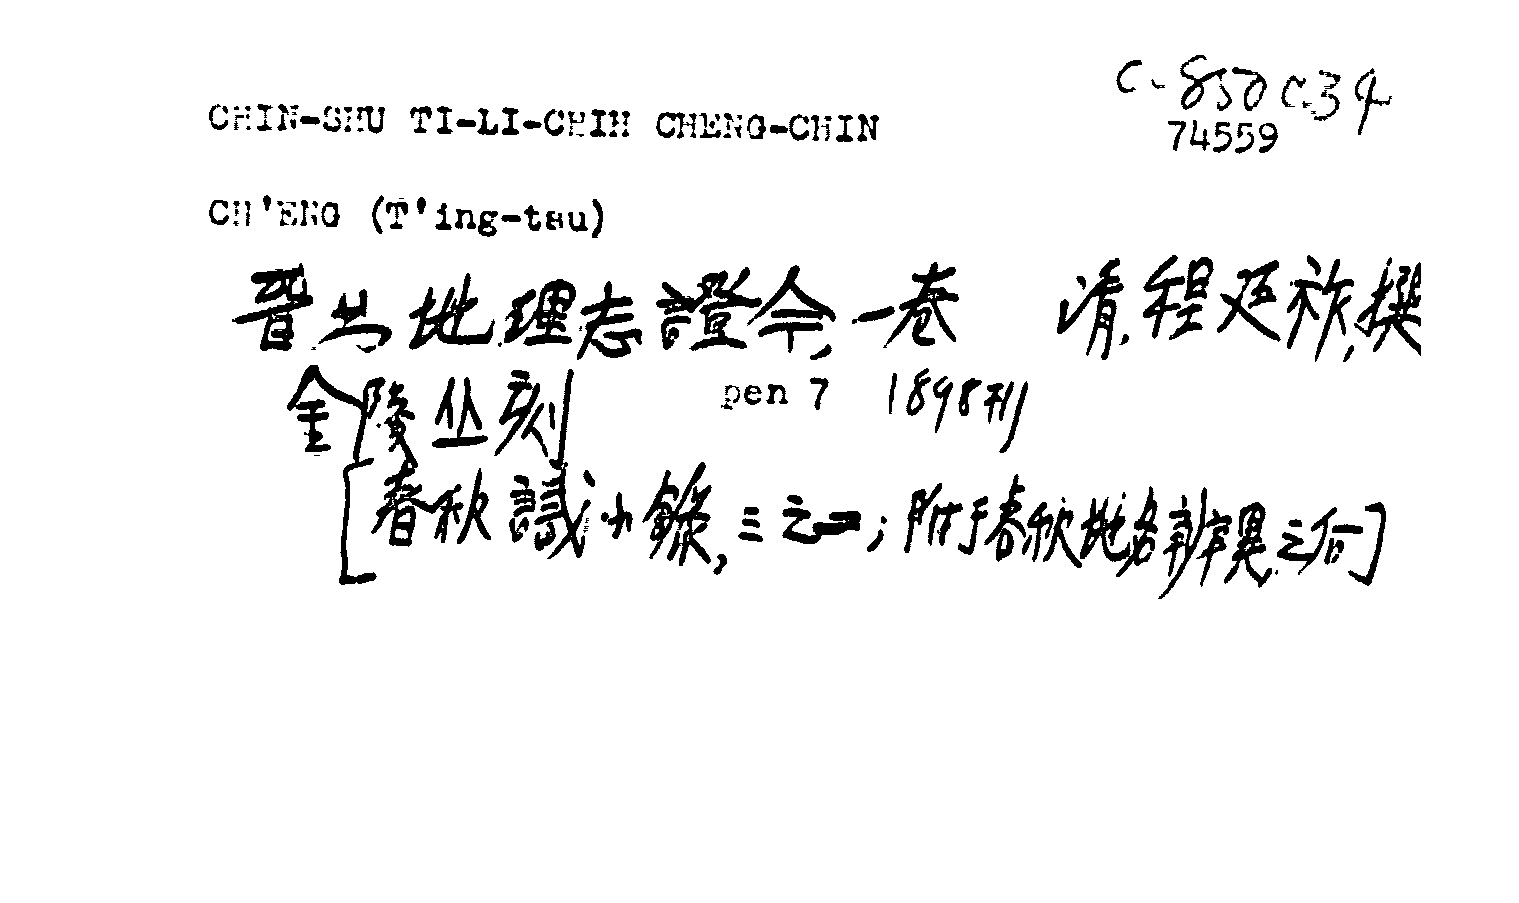 C-850 C.34
74559
CHIN-SHU TI-LI-CHIH CHENG-CHIN
CH'ENG (T'ing-tsu)
晉书地理志證今,一卷 清,程廷祚,撰
金陵丛刻 pen 7 1898刊
[春秋識小錄,三之一;附于春秋地名辨異之后]